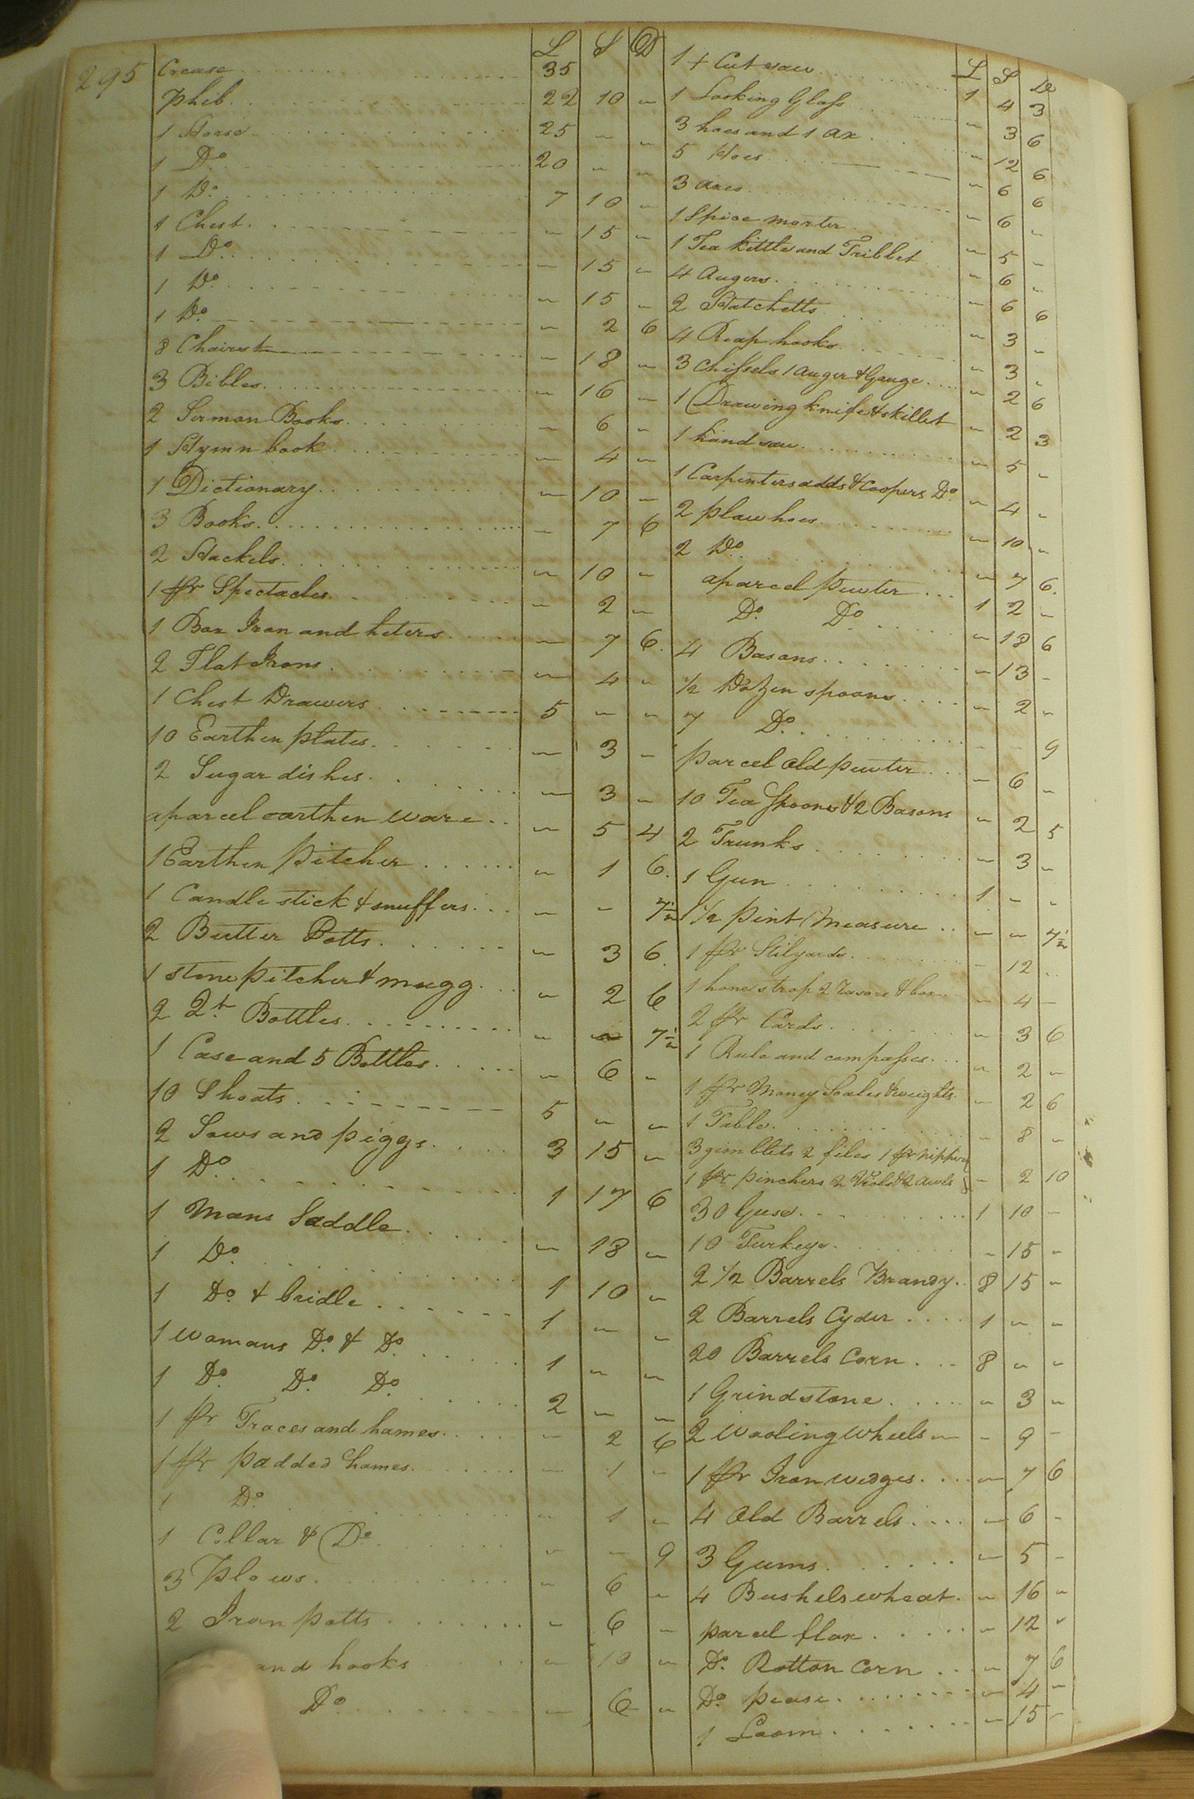 295
L S D
Crease 35
Phib 22 10 "
1 Horse 25 " "
1 Do 20 " "
1 Do 7 10 "
1 Chest " 15 "
1 Do " 15 "
1 Do " 15 "
1 Do " 2 6
8 Chairs " 18 "
3 Bibles " 16 "
2 Sermon Books " 6 "
1 Hymn book " 4 "
1 Dictionary " 10 "
3 Books " 7 6
2 Hackels " 10 "
1 pr Spectacles " 2 "
1 Box Iron and heters " 7 6
2 Flat Irons " 4 "
1 Chest Drawers 5 " "
10 Earthen plates " 3 "
2 Sugar dishes " 3 "
aparcel earthen ware " 5 4
1 Earthen Pitcher " 1 6
1 Candle stick & snuffers " " 7½
2 Butter Potts " 3 6
1 stone pitcher & mugg " 2 6
2 Qt Bottles " " 7½
1 Case and 5 Bottles " 6 "
10 Shoats 5 " "
2 Sows and piggs 3 15 "
1 Do 1 17 6
1 Mans Saddle " 18 "
1 Do 1 10 "
1 Do & bridle 1 " "
1 womans Do & Do 1 " "
1 Do Do Do 2 " "
1 pr Traces and hames " 2 6
1 pr padded hames " 1 "
1 Do " 1 "
1 Collar & Do " " 9
3 Plows " 6 "
2 Iron potts " 6 "
and hooks " 10 "
Do " 6 "
L S D
1 + Cut saw 1 4 3
1 Looking Glass " 3 6
3 hoes and 1 ax " 12 6
5 Hoes " 6 6
3 axes " 6 "
1 Spice morter " 5 "
1 Tea kittle and Tribbet " 6 "
4 Augers " 6 6
2 Hatchetts " 3 "
4 Reap hooks " 3 "
3 Chissels 1 Auger & Gauge " 2 6
1 Drawing knife & skillet " 2 3
1 hand saw " 5 "
1 Carpenters adds & Coopers Do " 4 "
2 plaw hoes " 10 "
2 Do " 7 6
aparcel Pewter 1 2 "
Do Do " 18 6
4 Basons " 13 "
½ Dozen spoons " 2 "
7 Do " " 9
parcel Old pewter " 6 "
10 Tea Spoons & 2 Basons " 2 5
2 Trunks " 3 "
1 Gun 1 " "
1 ½ pint Measure " " 7½
1 pr Stilyards " 12 "
1 hone strop 2 rasors & box " 4 "
2 pr Cards " 3 6
1 Rule and compasses " 2 "
1 pr Money Scales & weights " 2 6
1 Table " 8 "
3 gimblets 2 files 1 pr nippers
1 pr pinchers 2 & 2 awls " 2 10
30 Guse 1 10 "
10 Turkeys " 15 "
2 ½ Barrels Brandy 8 15 "
2 Barrels Cyder 1 " "
20 Barrels Corn 8 " "
1 Grindstone " 3 "
2 wooling wheels " 9 "
1 pr Iron wedges " 7 6
4 Old Barrels " 6 "
3 Gums " 5 "
4 Bushels wheat " 16 "
parcel flax " 12 "
Do Rotton Corn " 7 6
Do pease " 4 "
1 Loom " 15 "